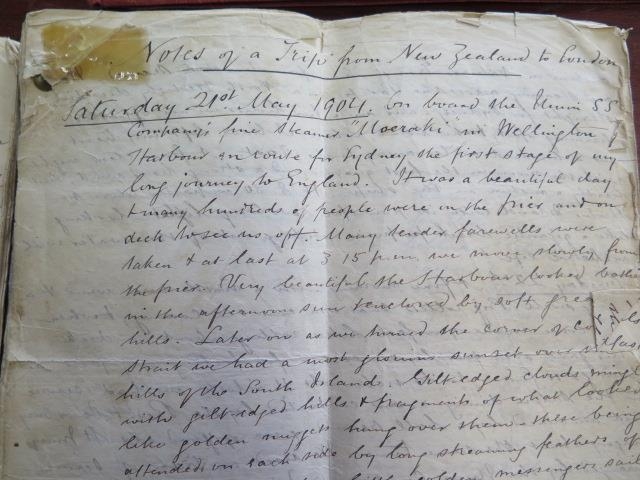 Notes of a Trip from New Zealand to London
Saturday 21st May 1904. On board the Union SS
Company's fine steamer "Moeraki" in Wellington
Harbour en route for Sydney the first stage of my
long journey to England. It was a beautiful day
& many hundreds of people were on the pier and on
deck to see us off. Many tender farewells were
taken & at last at 3 15 p.m. we move slowly from
the pier. Very beautiful the Harbour looked bathed
in the afternoon sun & enclosed by soft green
hills. Later on as we turned the corner of
Strait we had a most glorious sunset over
hills of the South Island. Gilt-edged clouds mingl
with gilt-edged hills & fragments of what looked
like golden nuggets hung over them - these being
attended on each side by long streaming feathers of
golden messengers